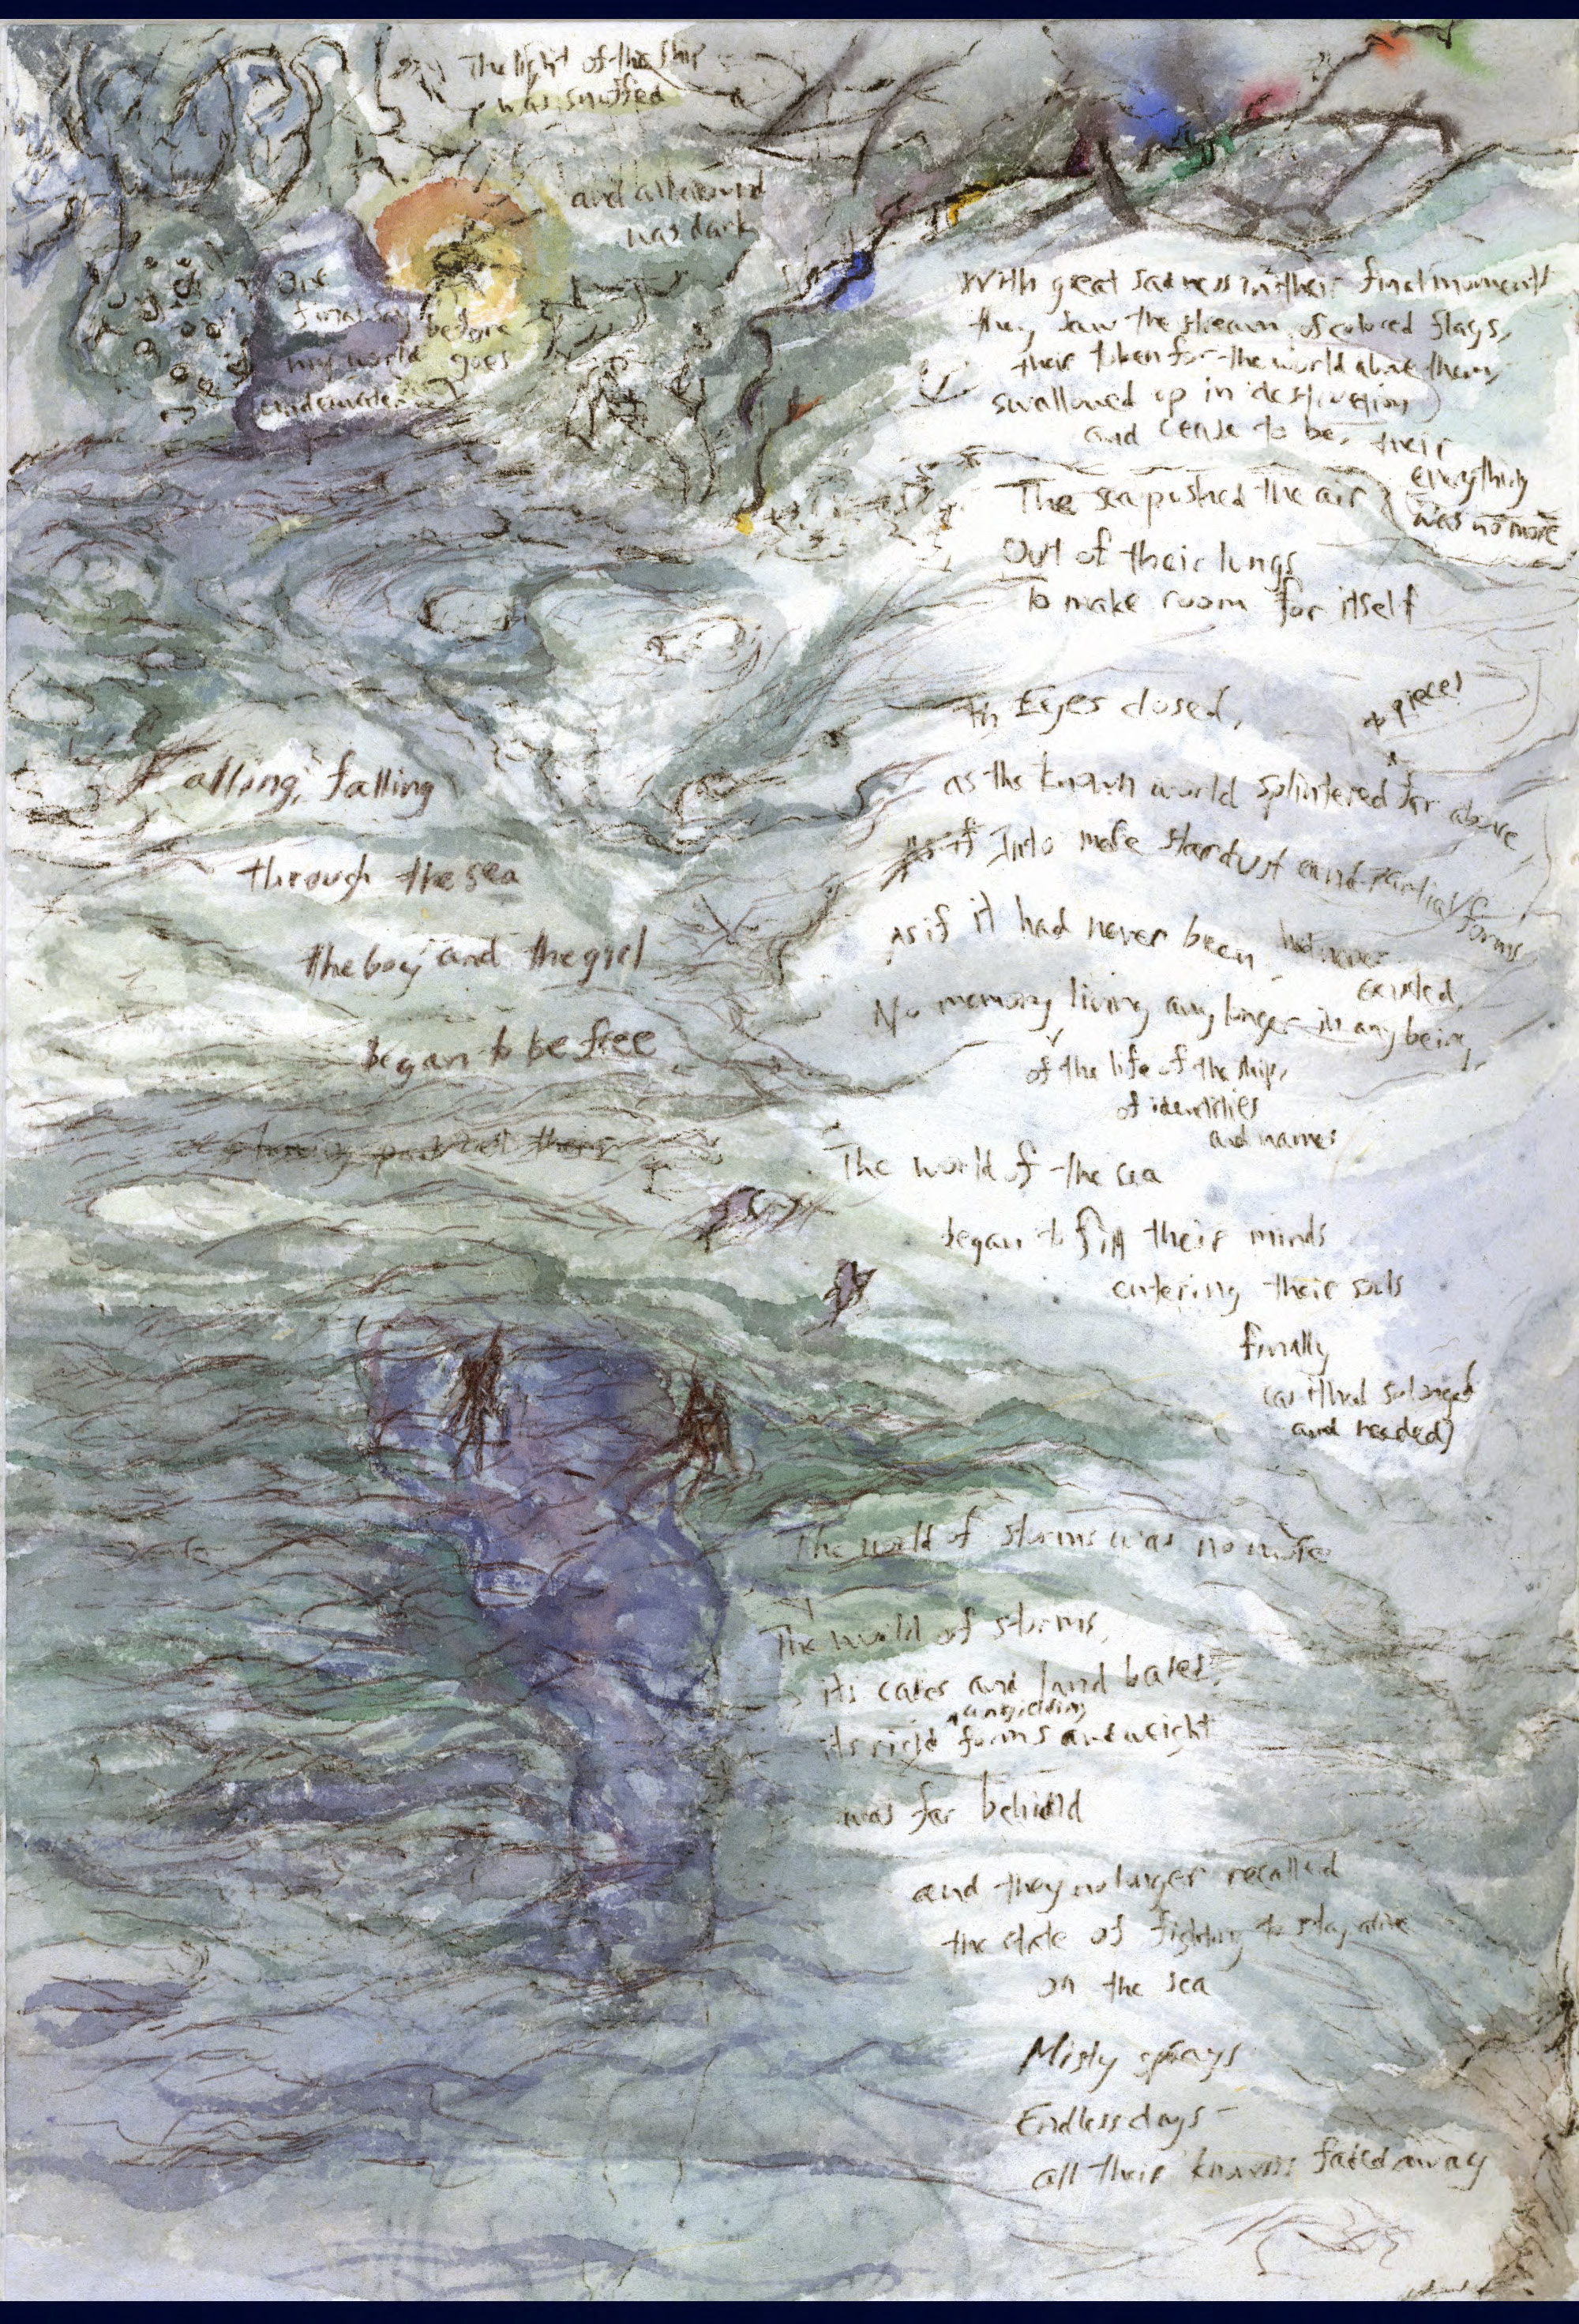 The light of the ship
was snuffed
and all around
was dark
final say before
my world goes
underwater
With great sadness in their final moments
they saw the stream of colored flags,
their token for the world above them,
swallowed up in destruction
and cease to be, their
everything
was no more
The sea pushed the air
Out of their lungs
To make room for itself
Eyes closed,
to pieces
as the known world splintered far above
Into mere stardust and
forms
As if it had never been, had never
existed,
No memory living any longer in any being,
of the life of the ship,
of identities
and names
Falling, falling
through the sea
the boy and the girl
began to be free
The world of the sea
began to fill their minds
entering their souls
finally
(as it had so longed
and needed)
The world of storms was no more
The world of storms,
its cares and
unyielding
its rigid forms and weight
was far behind
and they no longer recalled
the state of fighting to stay alive
on the sea
Misty sprays
Endless days -
all their knowns faded away